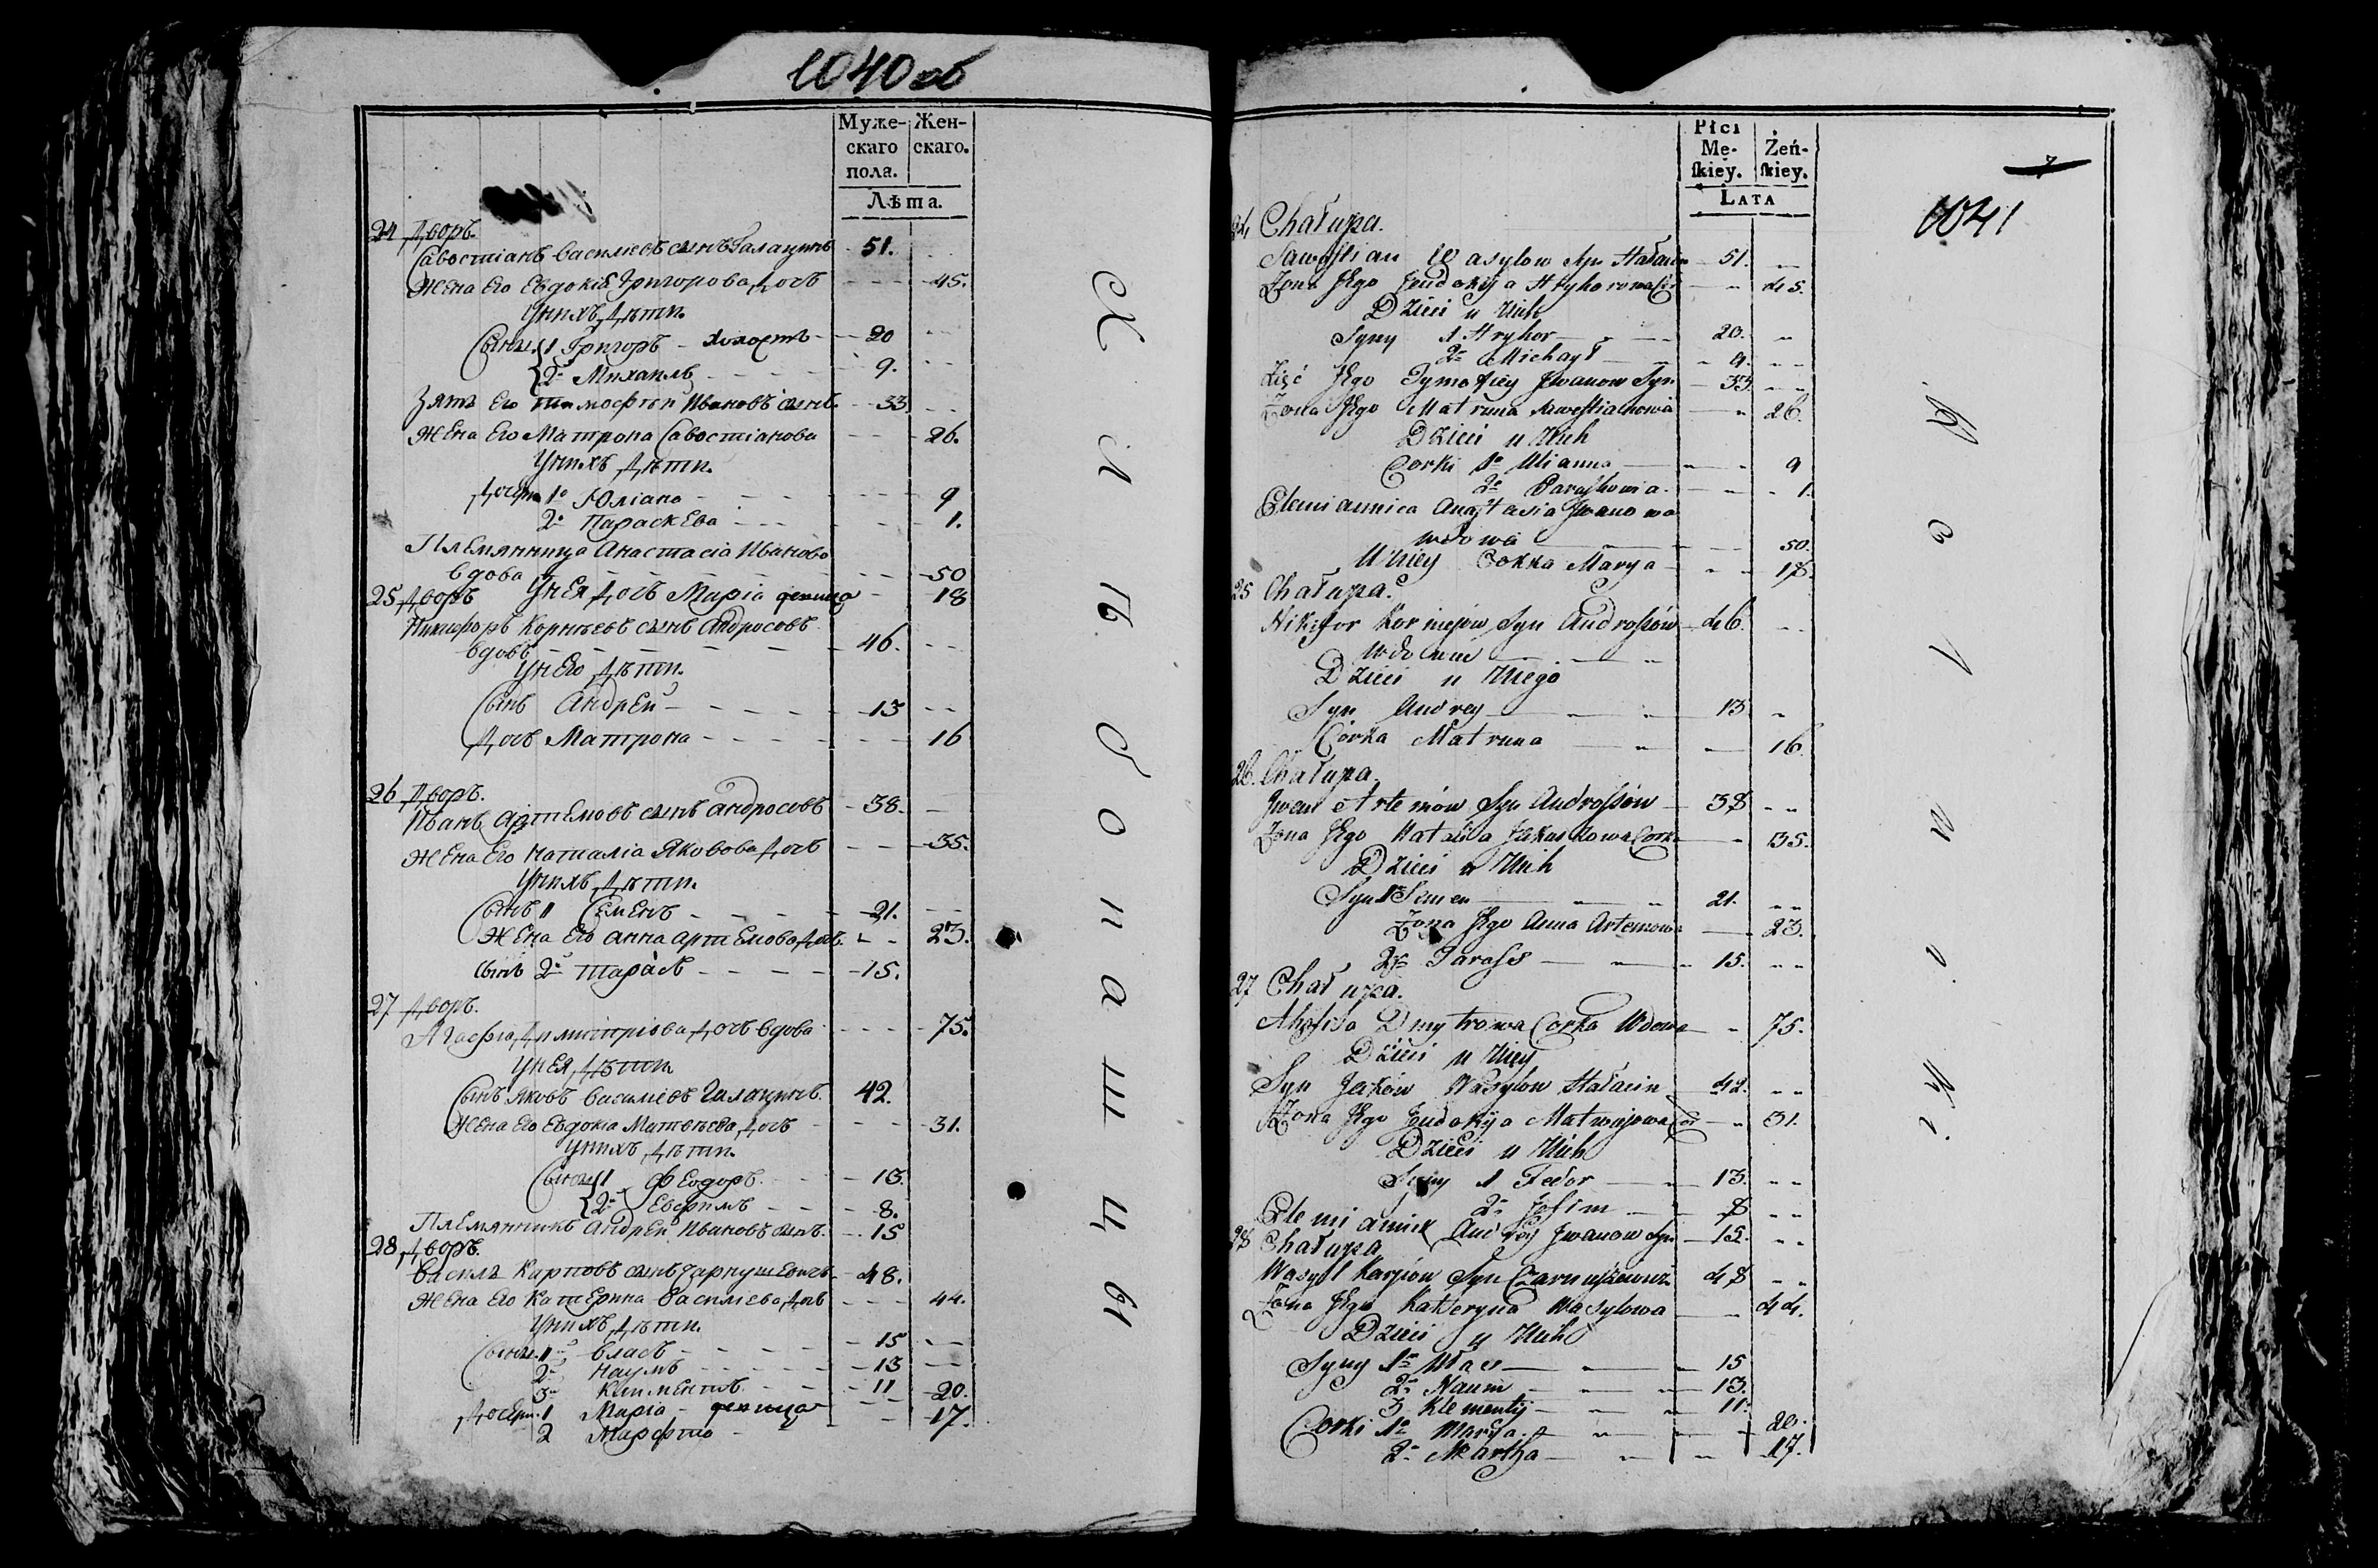 1040 об
Муже-
скаго
пола.
Жен-
скаго.
Лѣта.
24 Дворъ.
Савостіанъ Василіевъ сынъ Галацинъ 51.
Жена Его Евдокіѣ Григорова дочъ 45.
Унихъ дѣти.
Сыны 1 Григоръ - холостъ 20
2 Михаилъ 9.
Зять Его Тимофѣй Ивановъ сынъ 33
Жена Его Матрона Савостіанова 26.
Унихъ дѣти.
дочери 1 Юліана 9
2 Параскева 1.
Племянница Анастасія Иванова
вдова 50
Унея дочъ Марія девица 18
25 Дворъ
Никифоръ Корнѣевъ сынъ Андросовъ
вдовъ 46.
Унего дѣти.
Сынъ Андрей 13
Дочъ Матрона 16
26 Дворъ.
Иванъ Артемовъ сынъ Андросовъ 38.
Жена Его Наталіа Яковова дочъ 35.
Унихъ дѣти.
Сынъ 1 Семенъ 21.
Жена Его Анна Артемова дочъ. 23.
Сынъ 2 Тарасъ 15.
27 Дворъ.
Агафіа Димитріова дочъ вдова 75.
Унея дѣти
Сынъ Яковъ Василіевъ Галацинъ. 42.
Жена Его Евдокіа Матвѣева дочъ 31.
Унихъ дѣти.
Сыны 1 Феодоръ. 13.
2 Евфимъ 8.
Племянникъ Андрей Ивановъ сынъ. 15
28 Дворъ.
Василъ Карповъ сынъ Чарнушевичъ 48.
Жена Его Катерина Василиева дочъ 44.
Унихъ дѣти.
Сыны. 1 Власъ 15
2 Наумъ 13
3 Климентій 11
Дочери. 1 Марія - девица 20.
2 Марфта 17.
Хлѣбопашцы
Płci
Mę-
ſkiey.
Żeń-
ſkiey.
LATA
1041
24 Chałupa.
Sawestian Wasylow Syn Hałacin 51.
Żona Jego Jeudokija Hryhorowa Cór 45.
Dzieci u Nich
Syny 1 Hryhor 20.
2 Michaył 9.
Zięć Jego Tymofiey Jwanow Syn 33
Żona Jego Matruna Sawestianowa 26.
Dzieci u Nich
Corki 1 Ulianna 9
2 Paraskowia 1.
Plemiannica Anastasia Jwanowa
wdowa 50.
U Niey Corka Marya 18.
25 Chałupa.
Nikifor Korniejow Syn Androssów 46.
Wdowiec
Dzieci u Niego
Syn Andrey 13
Córka Matruna 16.
26. Chałupa.
Jwan Artemów Syn Androssów 38
Żona Jego Natalia Jakowowa Corka 35.
Dzieci u Nich
Syn 1 Semen 21.
Żona Jego Anna Artemowa 23.
2 Tarass 15.
27 Chałupa.
Ahafia Dmytrowa Corka Wdowa 75.
Dzieci u Niey
Syn Jaków Wasylow Hałacin 42.
Żona Jego Jeudokija Matwiejowa Cór 31.
Dzieci u Nich
Syny 1 Fedor 13.
2 Jefim 8
Plemiannik Andrey Jwanow Syn 15.
28 Chałupa
Wasyl Karpow Syn Czarnuszewicz 48
Żona Jego Katteryna Wasylowa 44.
Dzieci u Nich
Syny 1 Ułas 15
2 Naum 13.
3 Klementij 11.
Corki 1 Marya 20.
2 Martha 17.